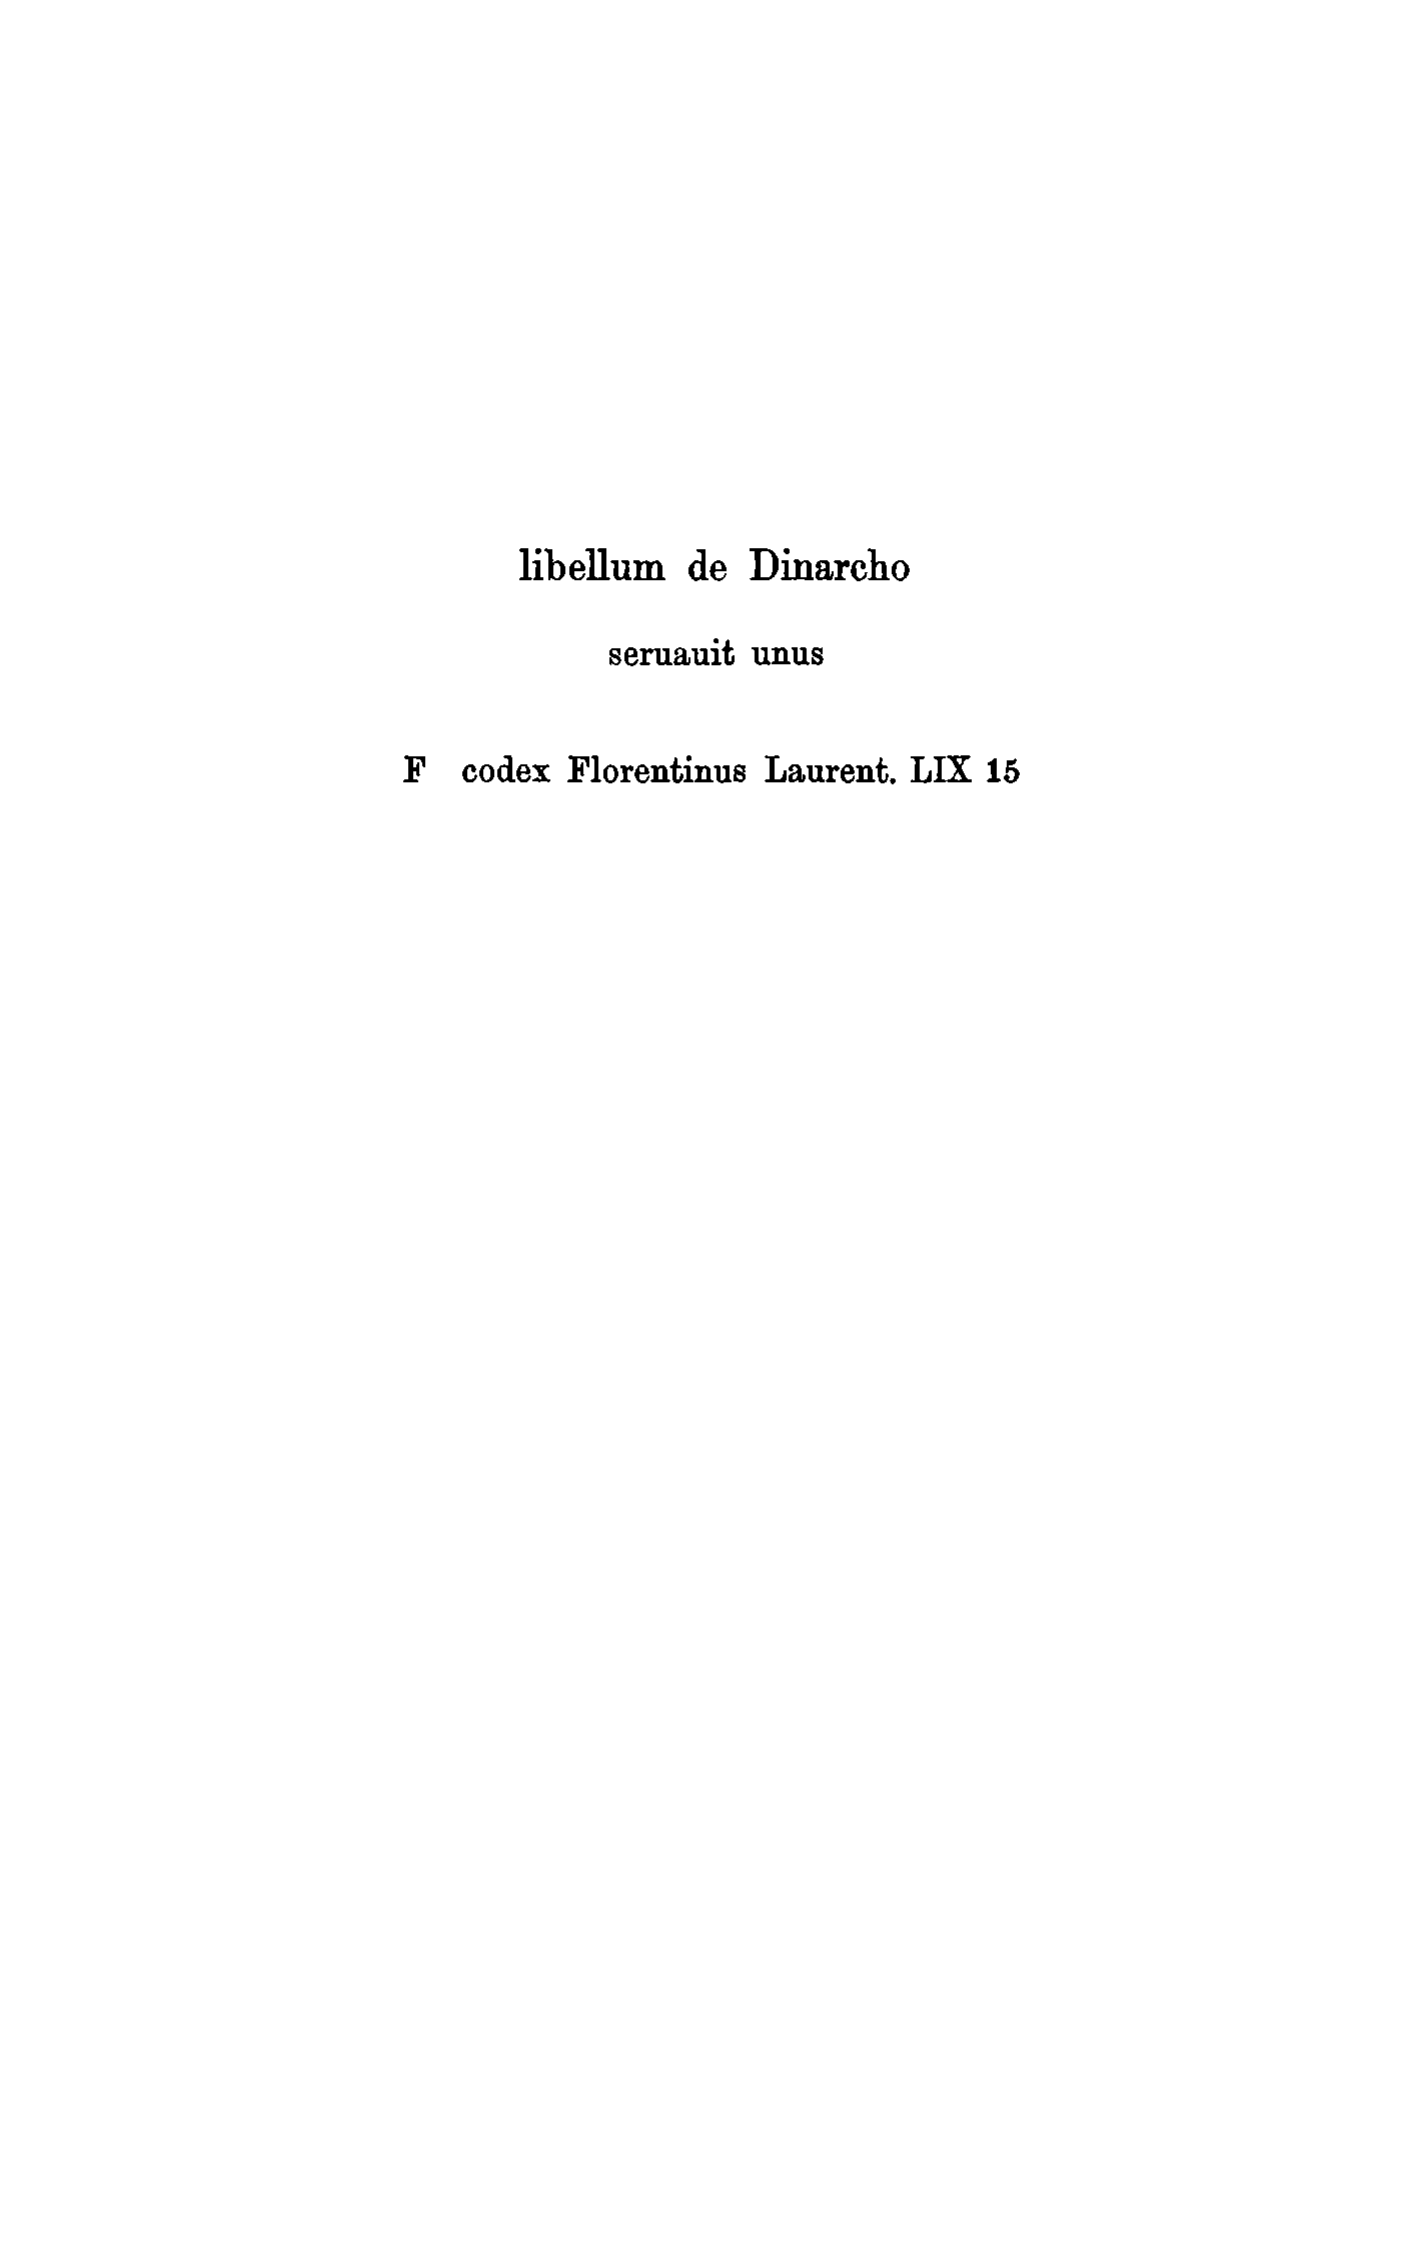 libellum de Dinarcho
seruauit unus
F codex Florentinus Laurent. LIX 15